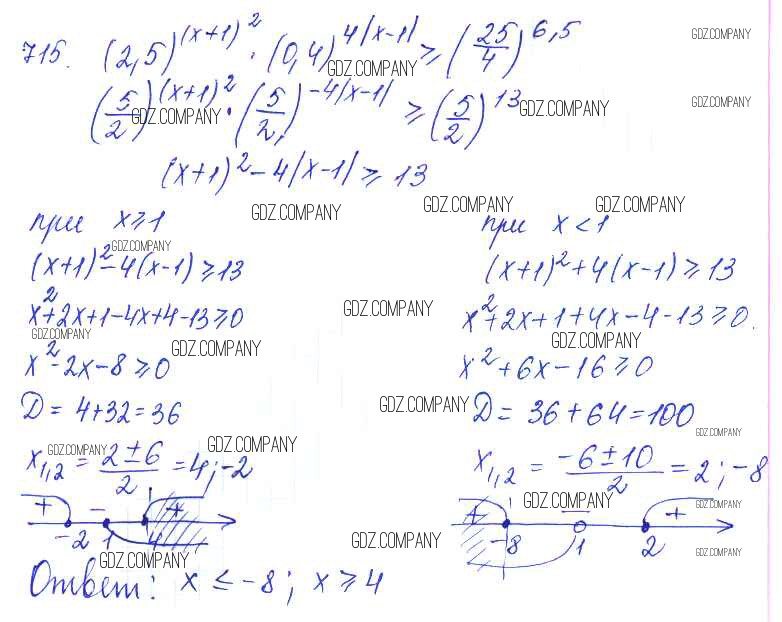 715. (2,5)^(x+1)^2 · (0,4)^4|x-1| ≥ (25/4)^6,5
GDZ.COMPANY
GDZ.COMPANY
(5/2)^(x+1)^2 · (5/2)^-4|x-1| ≥ (5/2)^13
GDZ.COMPANY
GDZ.COMPANY
GDZ.COMPANY
(x+1)^2 - 4|x-1| ≥ 13
GDZ.COMPANY
GDZ.COMPANY
GDZ.COMPANY
при x ≥ 1
GDZ.COMPANY
(x+1)^2 - 4(x-1) ≥ 13
x^2+2x+1-4x+4-13 ≥ 0
GDZ.COMPANY
GDZ.COMPANY
GDZ.COMPANY
x^2-2x-8 ≥ 0
D = 4+32 = 36
GDZ.COMPANY
GDZ.COMPANY
x1,2 = (2±6)/2 = 4; -2
+ - +
-2 1 4
при x < 1
(x+1)^2 + 4(x-1) ≥ 13
x^2+2x+1+4x-4-13 ≥ 0.
GDZ.COMPANY
x^2+6x-16 ≥ 0
GDZ.COMPANY
D = 36+64 = 100
GDZ.COMPANY
x1,2 = (-6±10)/2 = 2; -8
GDZ.COMPANY
GDZ.COMPANY
+ - +
-8 1 2
GDZ.COMPANY
GDZ.COMPANY
GDZ.COMPANY
Ответ: x ≤ -8; x ≥ 4